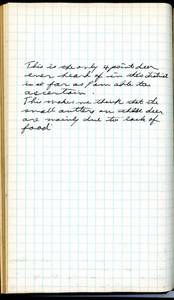 This is the only 4 point deer
ever heard of in this District
in so far as I am able to
ascertain.
This makes me think that the
small antlers on these deer
are mainly due to lack of
food